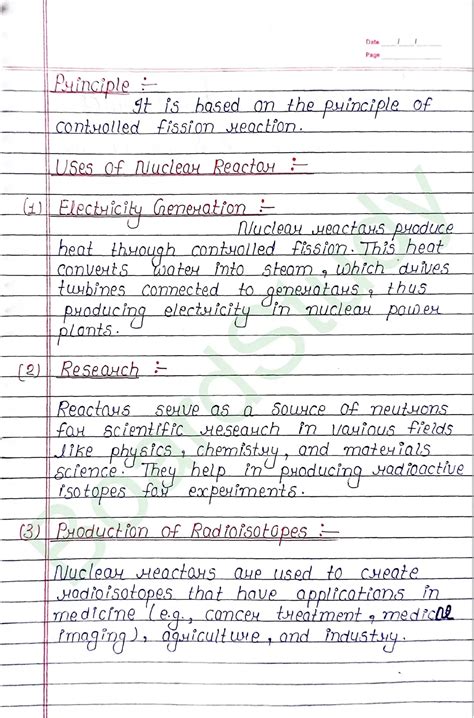 Date / /
Page
Principle :-
It is based on the principle of
controlled fission reaction.
Uses of Nuclear Reactor :-
(1) Electricity Generation :-
Nuclear reactors produce
heat through controlled fission. This heat
converts water into steam, which drives
turbines connected to generators, thus
producing electricity in nuclear power
plants.
(2) Research :-
Reactors serve as a source of neutrons
for scientific research in various fields
like physics, chemistry, and materials
science. They help in producing radioactive
isotopes for experiments.
(3) Production of Radioisotopes :-
Nuclear reactors are used to create
radioisotopes that have applications in
medicine (e.g., cancer treatment, medicine
imaging), agriculture, and industry.
BoardStudy